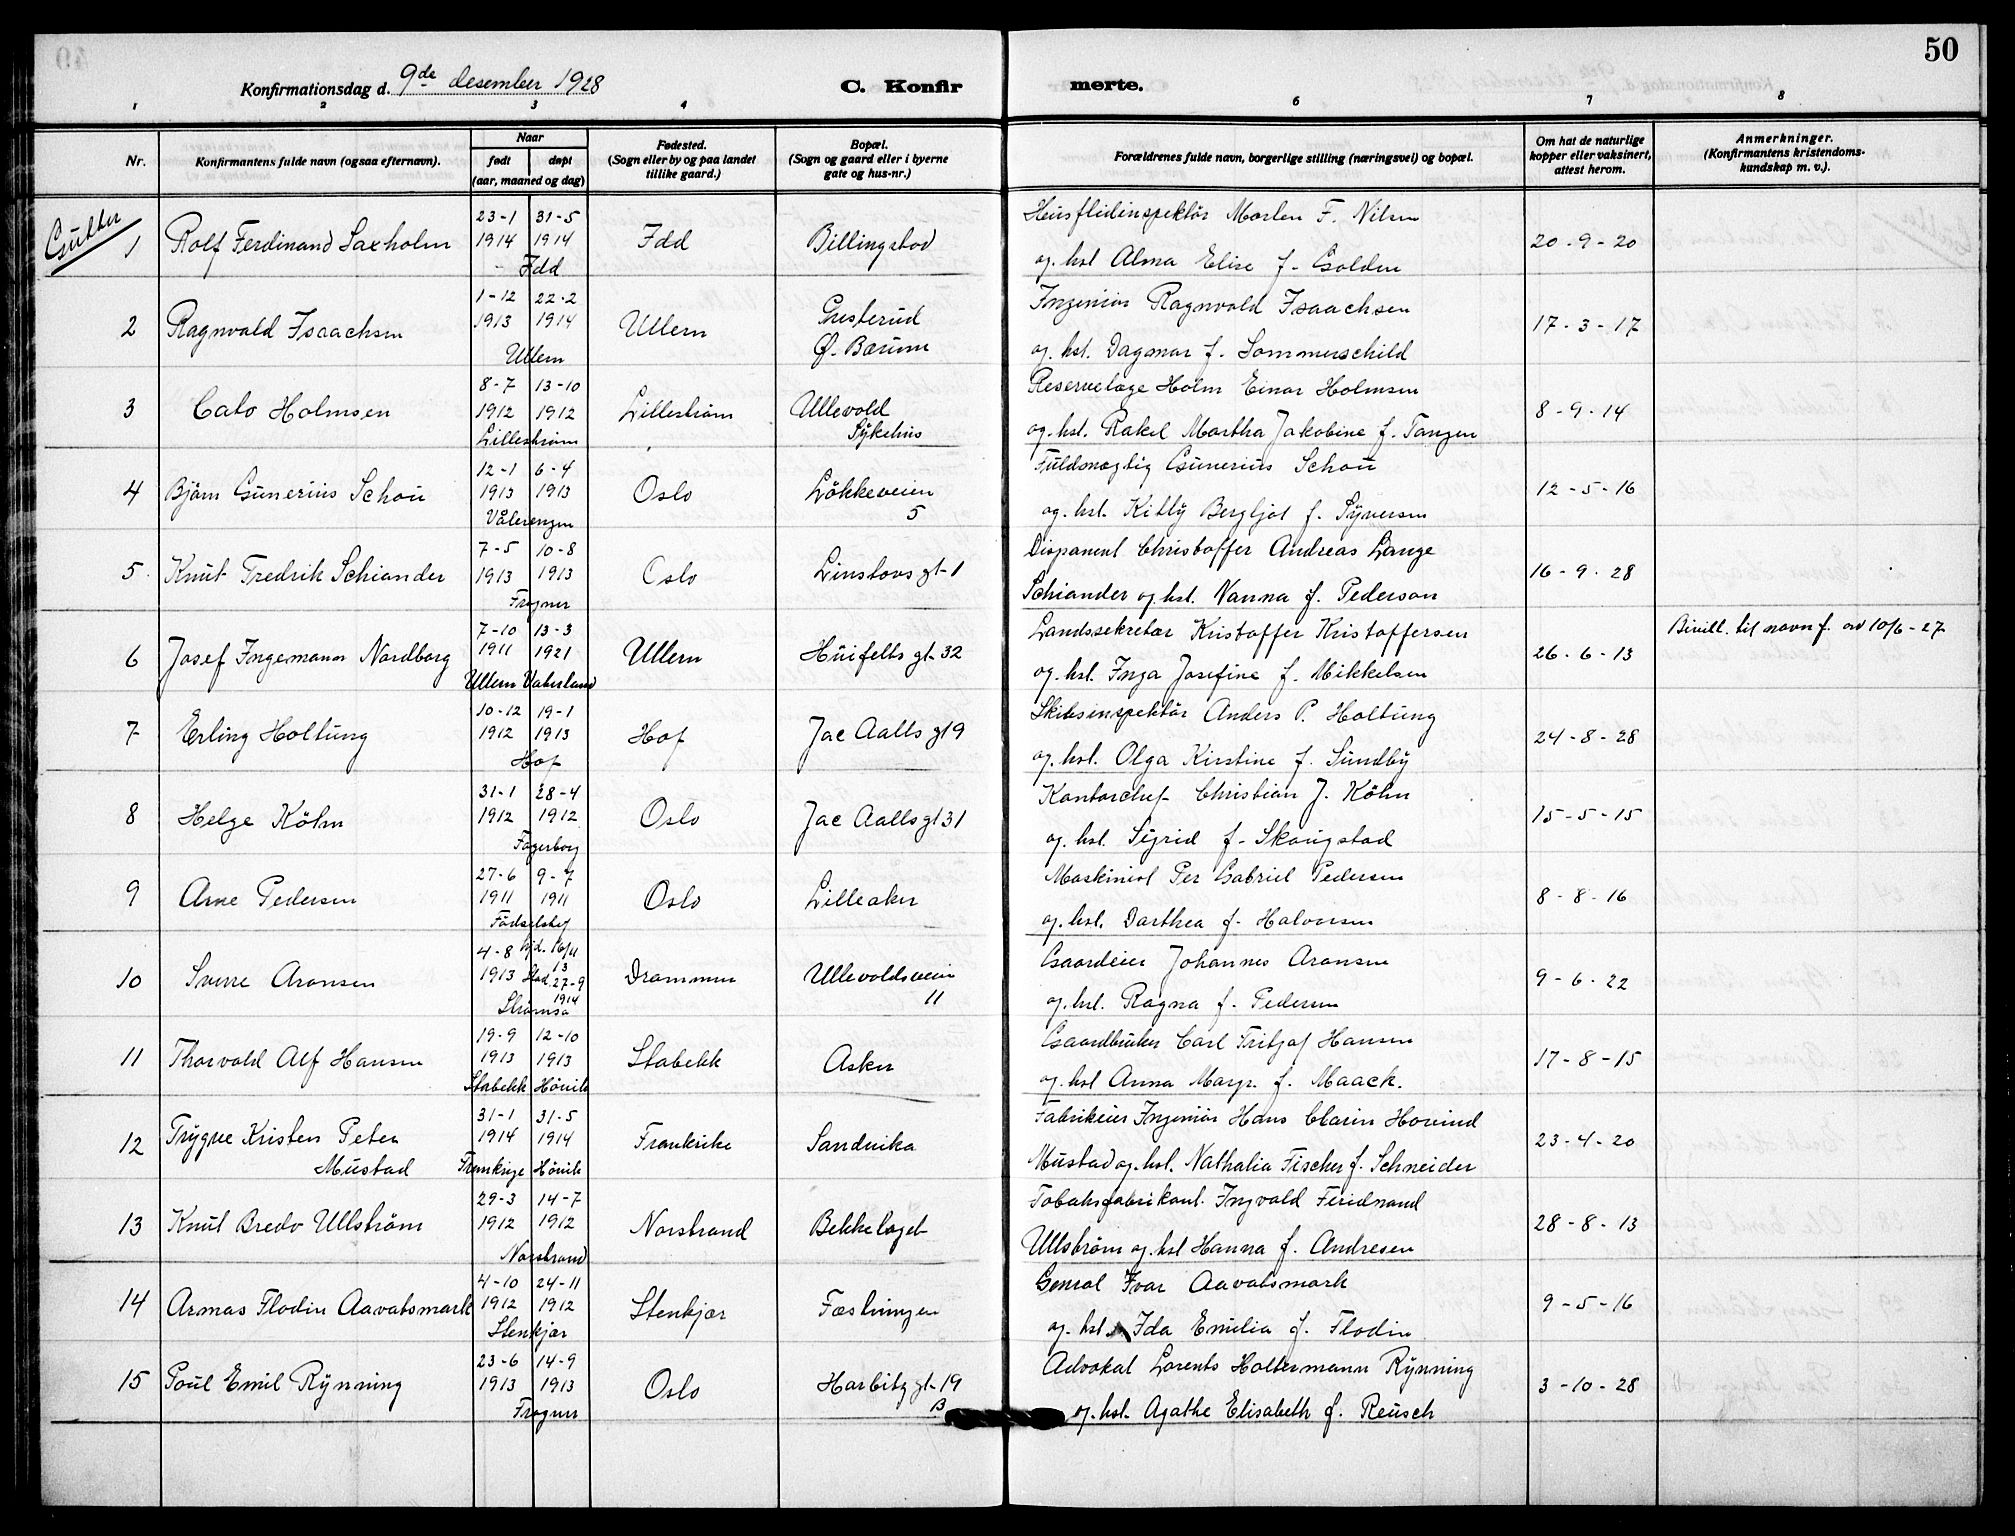 50
Konfirmationsdag d. 9de desember 1928
C. Konfirmerte.
1 2 3 4 5 6 7 8
Nr.
Konfirmantens fulde navn (ogsaa efternavn).
Naar
født
døpt
(aar, maaned og dag)
Fødested.
(Sogn eller by og paa landet
tillike gaard.)
Bopæl.
(Sogn og gaard eller i byerne
gate og hus-nr.)
Forældrenes fulde navn, borgerlige stilling (næringsvei) og bopæl.
Om hat de naturlige
kopper eller vaksinert,
attest herom.
Anmerkninger.
(Konfirmantens kristendoms-
kundskap m. v.).
Gutter
1 Rolf Ferdinand Saxholm 23-1 1914 31-5 1914 Idd Idd Billingstad
Husflidinspektør Morten F. Nilsen
og hst Alma Elise f. Golden 20-9-20
2 Ragnvald Isaachsen 1-12 1913 22-2 1914 Ullern Ullern Gnesterud Ø. Bærum
Ingeniør Ragnvald Isaachsen
og hst. Dagmar f. Sommerschild 17-3-17
3 Cato Holmsen 8-7 1912 13-10 1912 Lillestrøm Lillestrøm Ullevold Sykehus
Reservelæge Holm Einar Holmsen
og hst. Rakel Martha Jakobine f. Tangen 8-9-14
4 Bjørn Gunerius Schou 12-1 1913 6-4 1913 Vålerengen Oslo Løkkeveien 5
Fuldmægtig Gunerius Schou
og hst. Kitty Bergljot f. Syversen 12-5-16
5 Knut Fredrik Schiander 7-5 1913 10-8 1913 Frogner Oslo Linstows gt 1
Disponent Christoffer Andreas Lange
Schiander og hst. Nanna f. Pederson 16-9-28
6 Josef Ingemann Nordborg 7-10 1911 13-3 1921 Ullern Vaterland Ullern Huitfelts gt 32
Landssekretær Kristoffer Kristoffersen
og hst. Inga Josefine f. Mikkelsen 26-6-13 Bevill. til navnf. av 10/6-27
7 Erling Holtung 10-12 1912 19-1 1913 Hof Hof Jac Aalls gt 9
Skibsinspektør Anders P. Holtung
og hst. Olga Kirstine f. Sundby 24-8-28
8 Helge Køhn 31-1 1912 28-4 1912 Fagerborg Oslo Jac Aalls gt 31
Kontorchef Christian J. Køhn
og hst. Sigrid f. Skougstad 15-5-15
9 Arne Pedersen 27-6 1911 9-7 1911 Fødselshj Oslo Lilleaker
Maskinist Per Gabriel Pedersen
og hst. Darthea f. Halvorsen 8-8-16
10 Sverre Aronsen 4-8 1913 hjd. 16/11 13 Stad. 27-9 1914 Strømsø Drammen Ullevoldsveien 11
Gaardeier Johannes Aronsen
og hst. Ragna f. Pedersen 9-6-22
11 Thorvald Alf Hansen 19-9 1913 12-10 1913 Stabekk Høvik Stabekk Asker
Gaardbruker Carl Fritjof Hansen
og hst Anna Margr. f. Maack. 17-8-15
12 Trygve Kristen Peter Mustad 31-1 1914 31-5 1914 Frankrige Høvik Frankrike Sandvika
Fabrikeier Ingeniør Hans Clarin Hovind
Mustad og hst. Nathalia Fischer f. Schneider 23-4-20
13 Knut Bredo Ullstrøm 29-3 1912 14-7 1912 Norstrand Norstrand Bekkelaget
Tobaksfabrikant Ingvald Feridnand
Ullstrøm og hst Hanna f. Andresen 28-8-13
14 Armas Flodin Aavatsmark 4-10 1912 24-11 1912 Stenkjær Stenkjær Fæstningen
General Ivar Aavatsmark
og hst. Ida Emilia f. Flodin 9-5-16
15 Poul Emil Rynning 23-6 1913 14-9 1913 Frogner Oslo Harbitz gt 19 B
Advokat Lorents Holtermann Rynning
og hst. Agathe Elisabeth f. Reusch 3-10-28